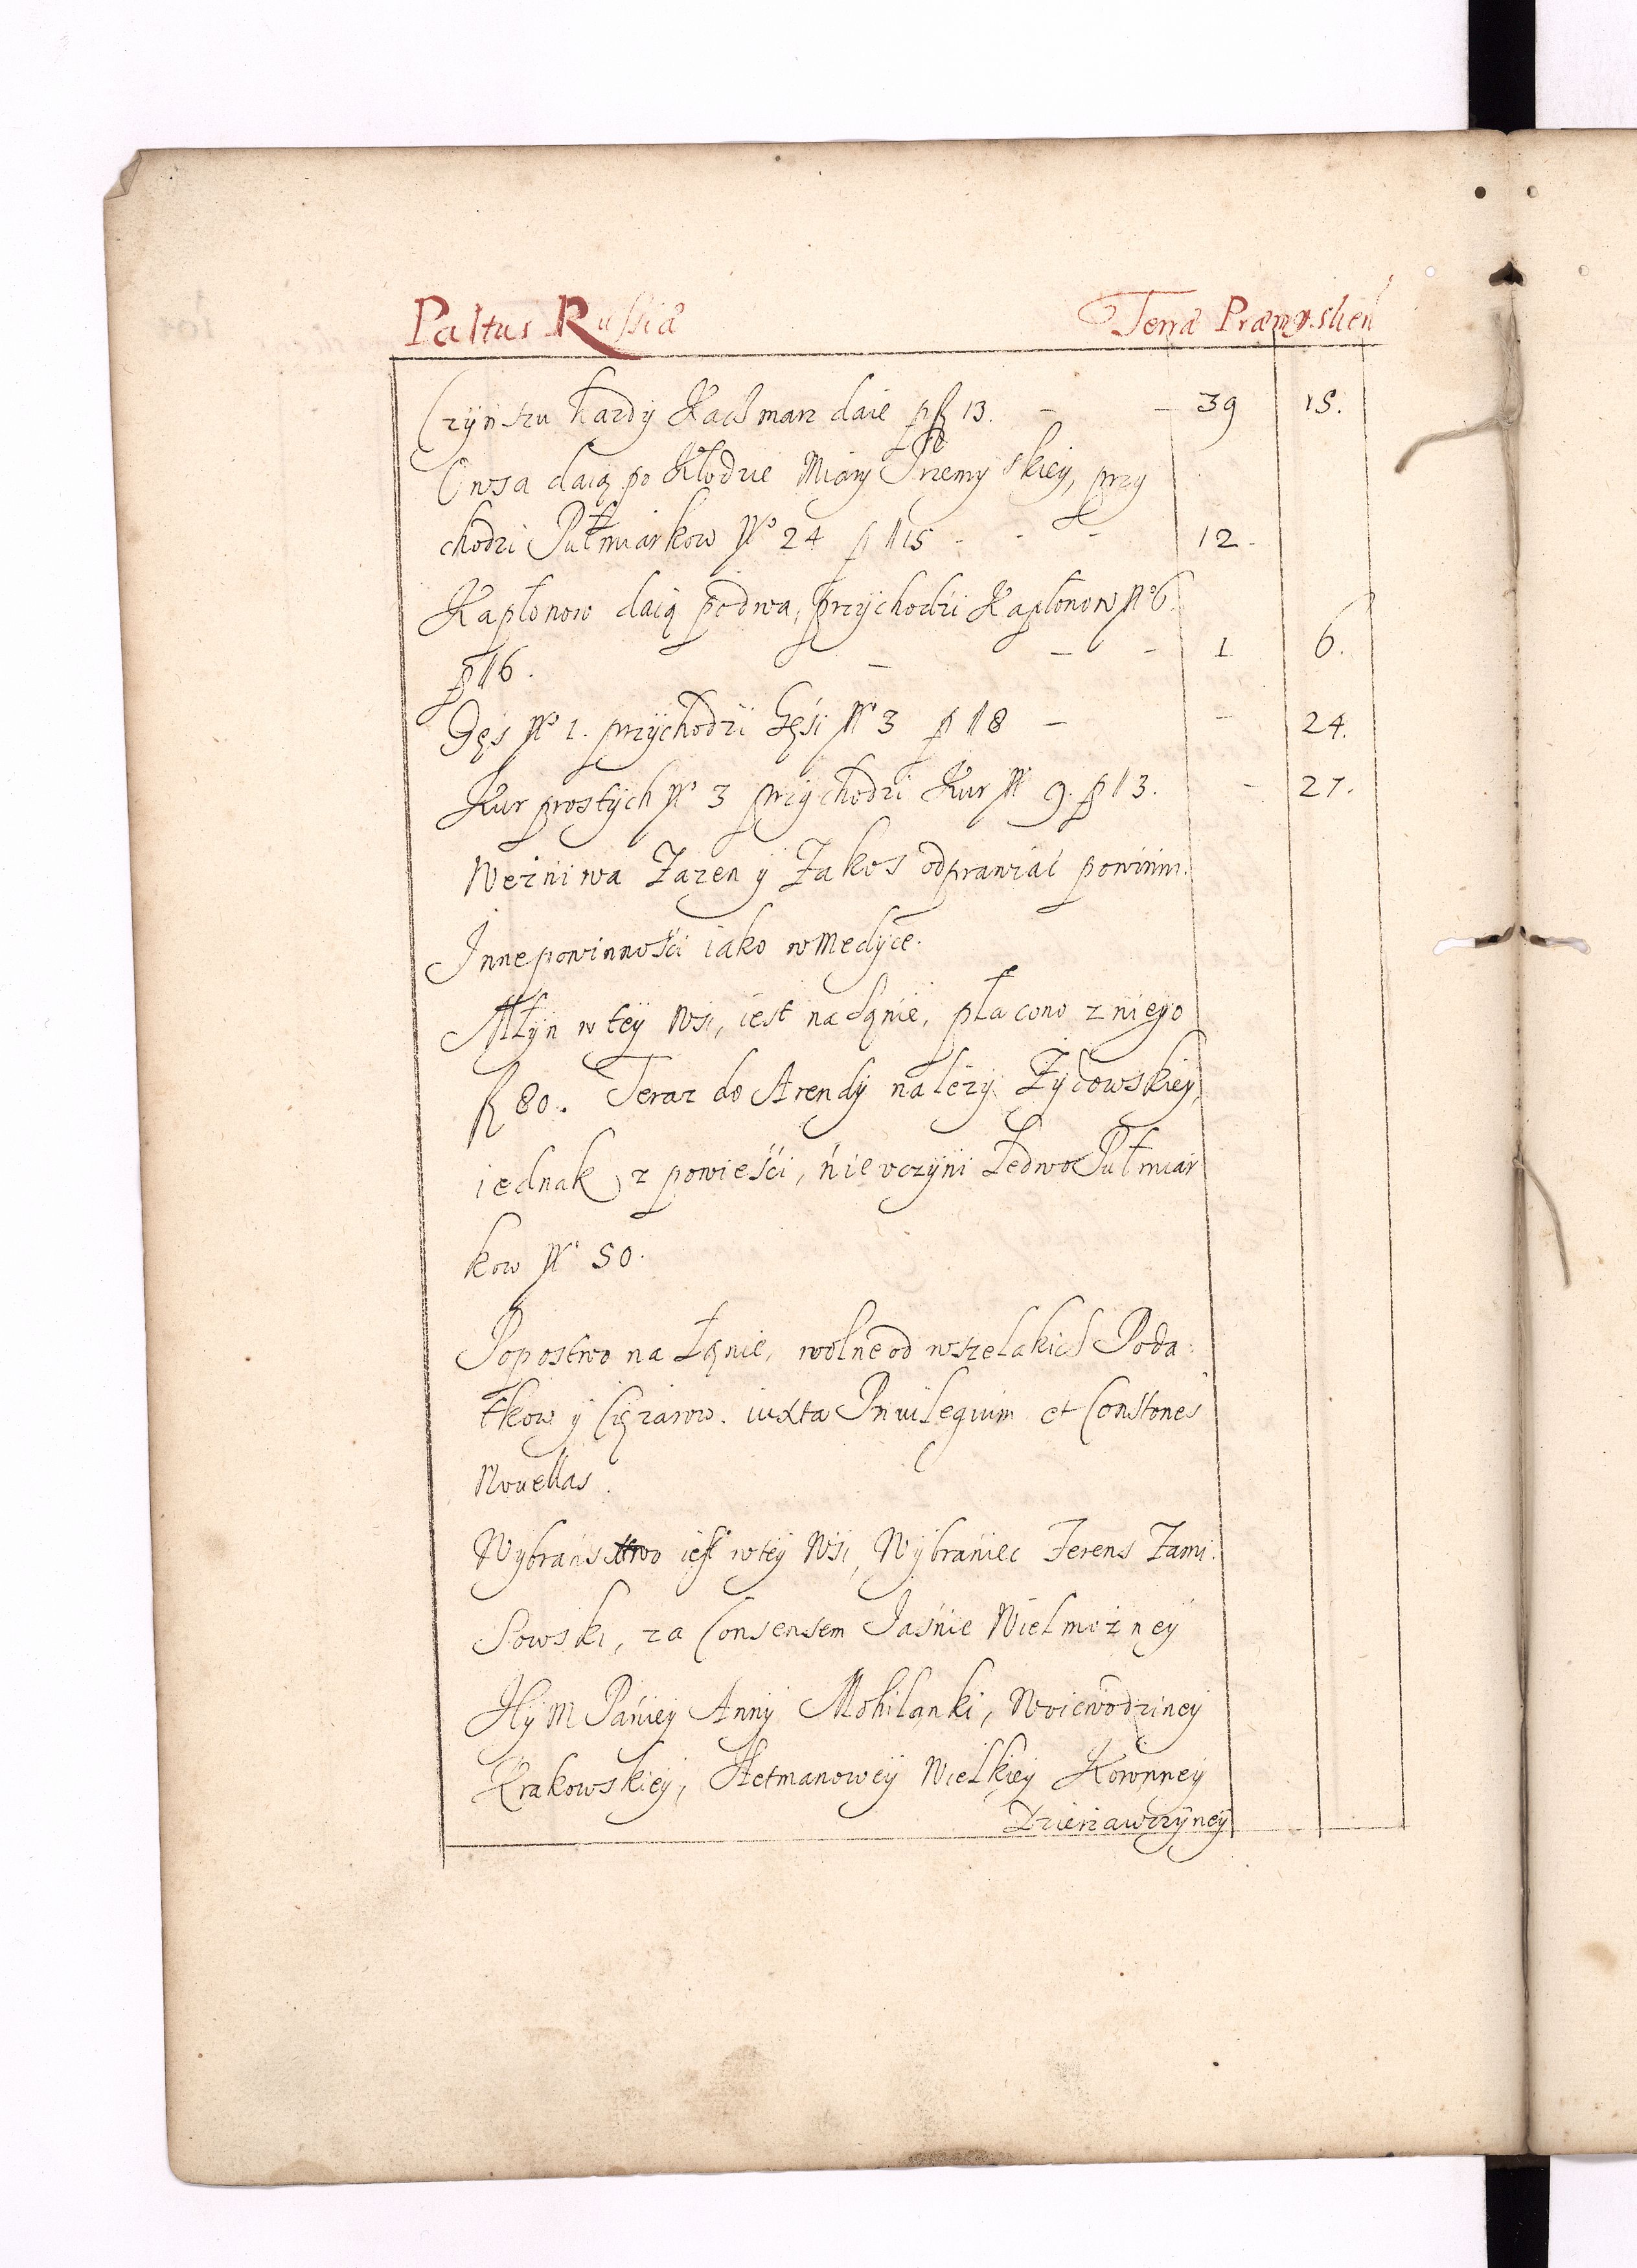 Paltus Russiæ Terræ Præmysлień
Czÿnszu kazdÿ Kaczmarz daie p fl 13. - - 39 15.
Owsa daią po Kłodzie Miary Przemyskiey, przy
chodzi Pułmiarkow N° 24 p ff 15 - - - 12 -
Kapłonow daią podwa, przÿchodźi Kapłonow N° 6.
p ff 6. - - - 1 6.
Gęs N° 1. przÿchodźi Gęśi N° 3 p ff 8 - - 24.
Kur prostÿch N° 3 przÿchodźi Kur N 9. p ff 3. - 27.
Weżniwa Zazen ÿ Zakos odprawiać powinni.
Inne powinnośći iako w Medÿce.
Młÿn w teÿ Wsi, iest na Łąnie, płacono z niego
fl 80. Teraz do Arendÿ nalezÿ Zÿdowskiey,
iednak z powieśći, nie vczÿni Ledwo Pułmiar
kow N° 50.
Popostwo na Łąnie, wolne od wszelakich Poda:
tkow ÿ Ciężarow. iuxta Priuilegium et Constones
Nouellas.
Wybranstwo iest w teÿ Wśi, Wÿbraniec Ferens Zawi.
sowski, za Consensem Jaśnie Wielmożneÿ
HÿM Pániey Annÿ Mohilanki, Woiewodzineÿ
Krakowskieÿ, Hetmanoweÿ Wielkiey Koronneÿ
Dzierzawczÿneÿ